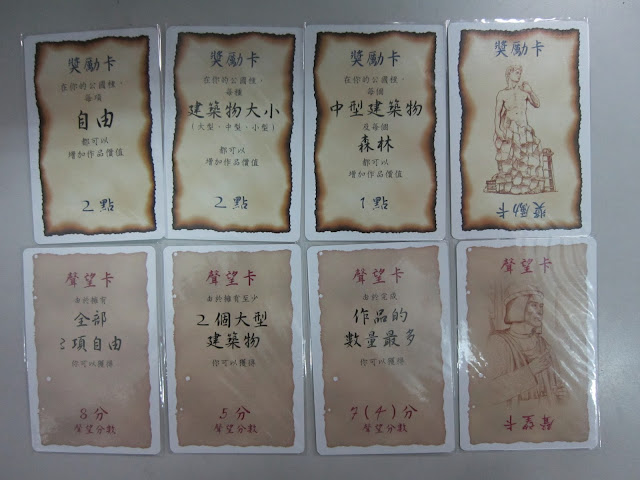 獎勵卡
在你的公國裡，
每項
自由
都可以
增加作品價值
2點
獎勵卡
在你的公國裡，
每種
建築物大小
（大型、中型、小型）
都可以
增加作品價值
2點
獎勵卡
在你的公國裡，
每個
中型建築物
及每個
森林
都可以
增加作品價值
1點
獎勵卡
獎勵卡
聲望卡
由於擁有
全部
3項自由
你可以獲得
8分
聲望分數
聲望卡
由於擁有至少
2個大型
建築物
你可以獲得
5分
聲望分數
聲望卡
由於完成
作品的
數量最多
你可以獲得
7(4)分
聲望分數
聲望卡
聲望卡